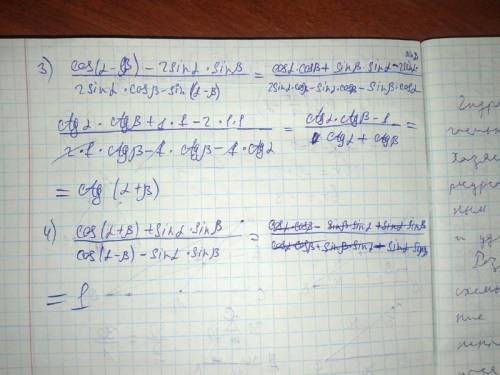 3) cos(α-β) - 2sinα·sinβ / 2sinα·cosβ-sin(α-β) = cosα·cosβ+ sinβ·sinα-2sinα·sinβ / 2sinα·cosβ-sinα·cosβ-sinβ·cosα
ctgα·ctgβ+1·1-2·1·1 / 2·1·ctgβ-1·ctgβ-1·ctgα = ctgα·ctgβ-1 / ctgα+ctgβ =
= ctg(α+β)
4) cos(α+β)+sinα·sinβ / cos(α-β)-sinα·sinβ = cosα·cosβ - sinβ·sinα+sinα·sinβ / cosα·cosβ+sinβ·sinα - sinα·sinβ
= 1